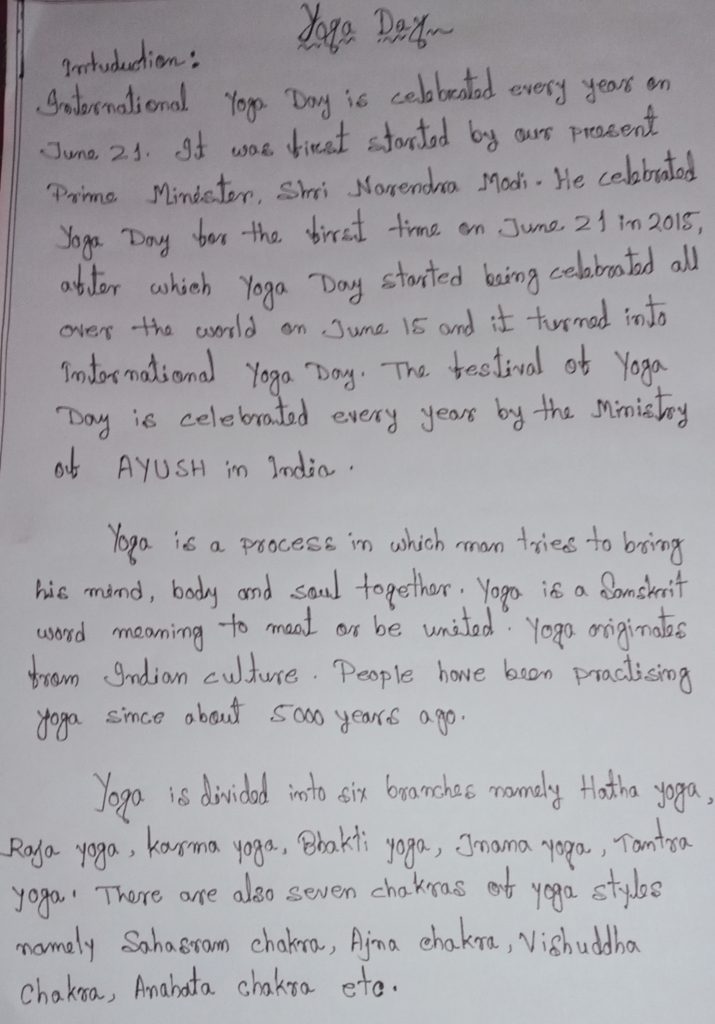 Yoga Day
Intuduction:
International Yoga Day is celebrated every year on
June 21. It was first started by our present
Prime Minister, Shri Narendra Modi. He celebrated
Yoga Day for the first time on June 21 in 2015,
after which Yoga Day started being celebrated all
over the world on June 15 and it turned into
International Yoga Day. The festival of Yoga
Day is celebrated every year by the Ministry
of AYUSH in India.
Yoga is a process in which man tries to bring
his mind, body and soul together. Yoga is a Sanskrit
word meaning to meet or be united. Yoga originates
from Indian culture. People have been practising
yoga since about 5000 years ago.
Yoga is divided into six branches namely Hatha yoga,
Raja yoga, karma yoga, Bhakti yoga, Jnana yoga, Tantra
yoga. There are also seven chakras of yoga styles
namely Sahasram chakra, Ajna chakra, Vishuddha
Chakra, Anahata chakra etc.